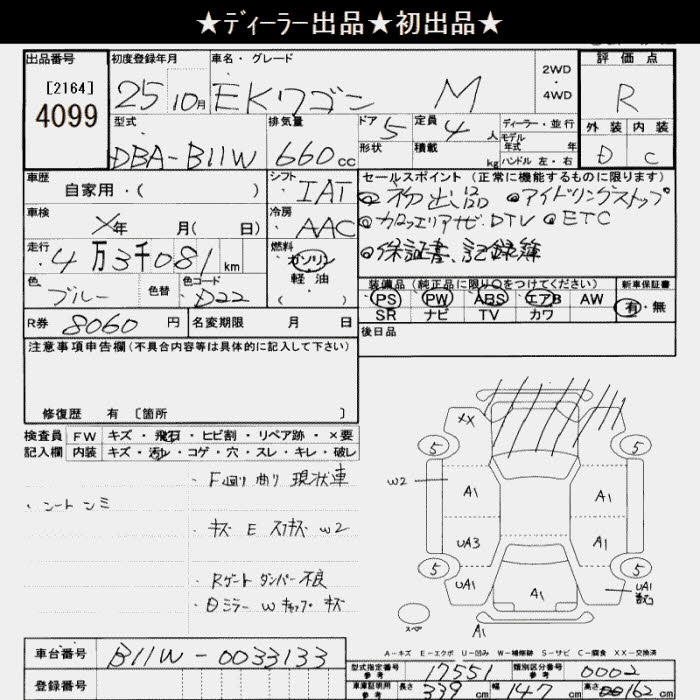 ★ディーラー出品★初出品★
出品番号 初度登録年月 車名・グレード 2WD・4WD 評価点
[2164] 4099 25 10月 EKワゴン M R
型式 排気量 ドア 5 定員 4人 ディーラー・並行 外装 内装
形状 積載 kg モデル年式 年式 ハンドル 左・右
DBA-B11W 660cc D C
車歴 自家用・( ) シフト IAT セールスポイント (正常に機能するものに限ります)
初出品 アイドリングストップ
車検 ×年 月( 日) 冷房 AAC
カロッツェリアナビ.DTV ETC
走行 4万3千081km 燃料 ガソリン・軽油・( )
保証書、記録簿
色 ブルー 色替 色コード D22
装備品 (純正品に限り○をつけてください) 新車保証書
PS PW ABS エアB AW 有・無
SR ナビ TV カワ
R券 8060円 名変期限 月 日 後日品
注意事項申告欄(不具合内容等は具体的に記入して下さい)
修復歴 有 [箇所 ]
検査員 FW キズ・飛石・ヒビ割・リペア跡・×要
記入欄 内装 キズ・汚レ・コゲ・穴・スレ・キレ・破レ
・F廻り曲り 現状車
・シートシミ
・キズ E スリキズ W2
・Rゲートダンパー不良
・ミラー Wキャップキズ
XX
5 5
W2 A1 A1
UA3 A1
5 5
UA1 A1 UA1
スペア A1
A-キズ E-エクボ U-凹み W-補修跡 S-サビ C-腐食 XX-交換済
車台番号 B11W-0033133
型式指定番号 参考 17551 類別区分番号 参考 0002
登録番号
車庫証明用 参考 長さ 339cm 幅 147cm 高さ 162cm